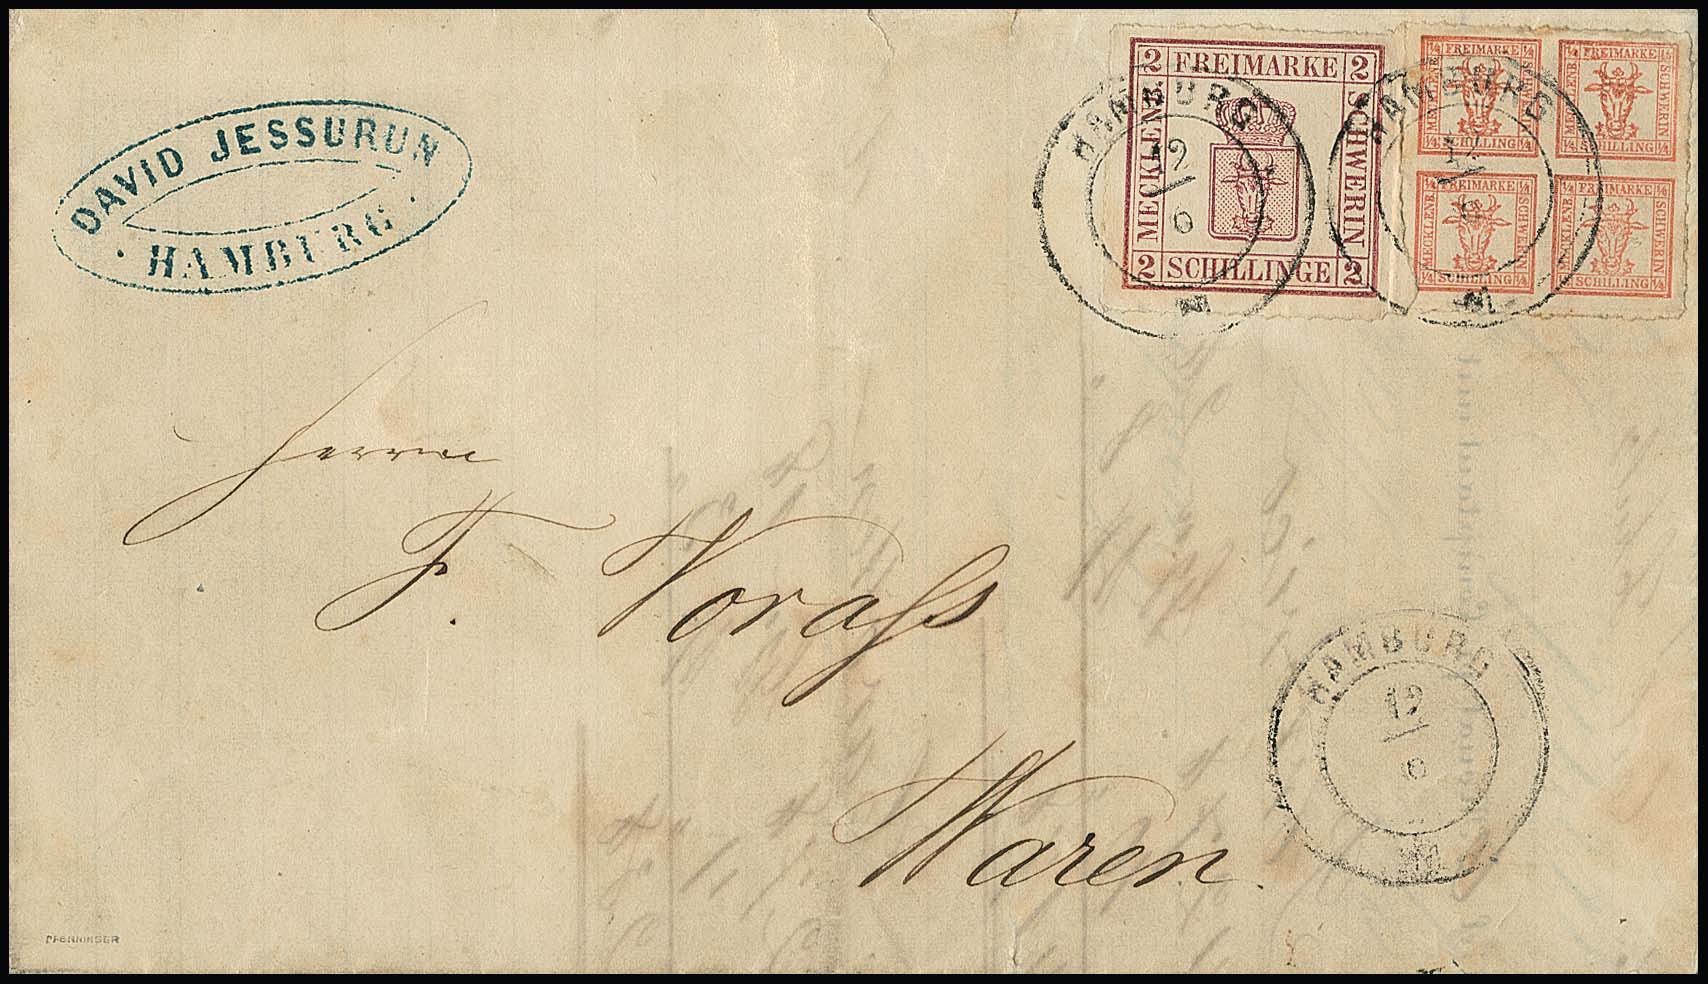 DAVID JESSURUN
· HAMBURG ·
2 FREIMARKE 2
MECKLENB.
SCHWERIN
2 SCHILLINGE 2
HAMBURG
12
6
1/4 FREIMARKE 1/4
MECKLENB.
SCHWERIN
1/4 SCHILLING 1/4
1/4 FREIMARKE 1/4
MECKLENB.
SCHWERIN
1/4 SCHILLING 1/4
1/4 FREIMARKE 1/4
MECKLENB.
SCHWERIN
1/4 SCHILLING 1/4
1/4 FREIMARKE 1/4
MECKLENB.
SCHWERIN
1/4 SCHILLING 1/4
HAMBURG
12
6
M
Herrn
F. Vorass
Waren.
HAMBURG
12
6
PFENNINGER